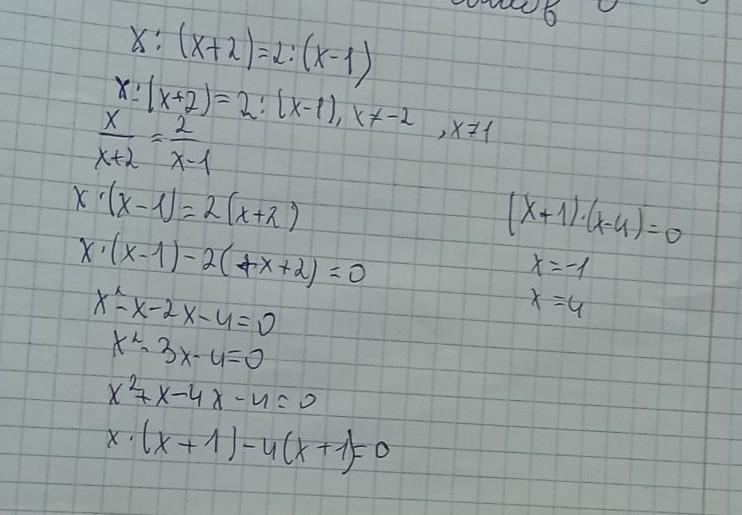 x : (x+2)=2:(x-1)
x:(x+2)=2:(x-1), x≠-2 , x≠1
x/(x+2) = 2/(x-1)
x·(x-1)=2(x+2)
x·(x-1)-2(x+2)=0
x²-x-2x-4=0
x²-3x-4=0
x²+x-4x-4=0
x·(x+1)-4(x+1)=0
(x+1)·(x-4)=0
x=-1
x=4